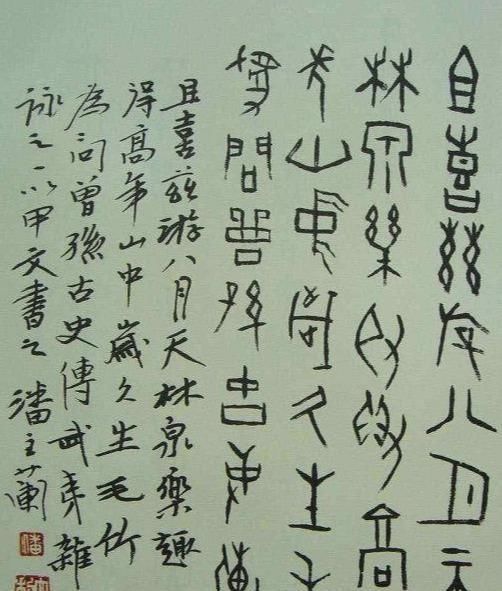 且喜茲游八月天
林泉樂趣得高
年山中歲久生毛
為問曾孫古史傳
且喜茲游八月天林泉樂趣
得高年山中歲久生毛竹
為問曾孫古史傳武夷雜
詠之一以甲文書之潘主蘭
潘